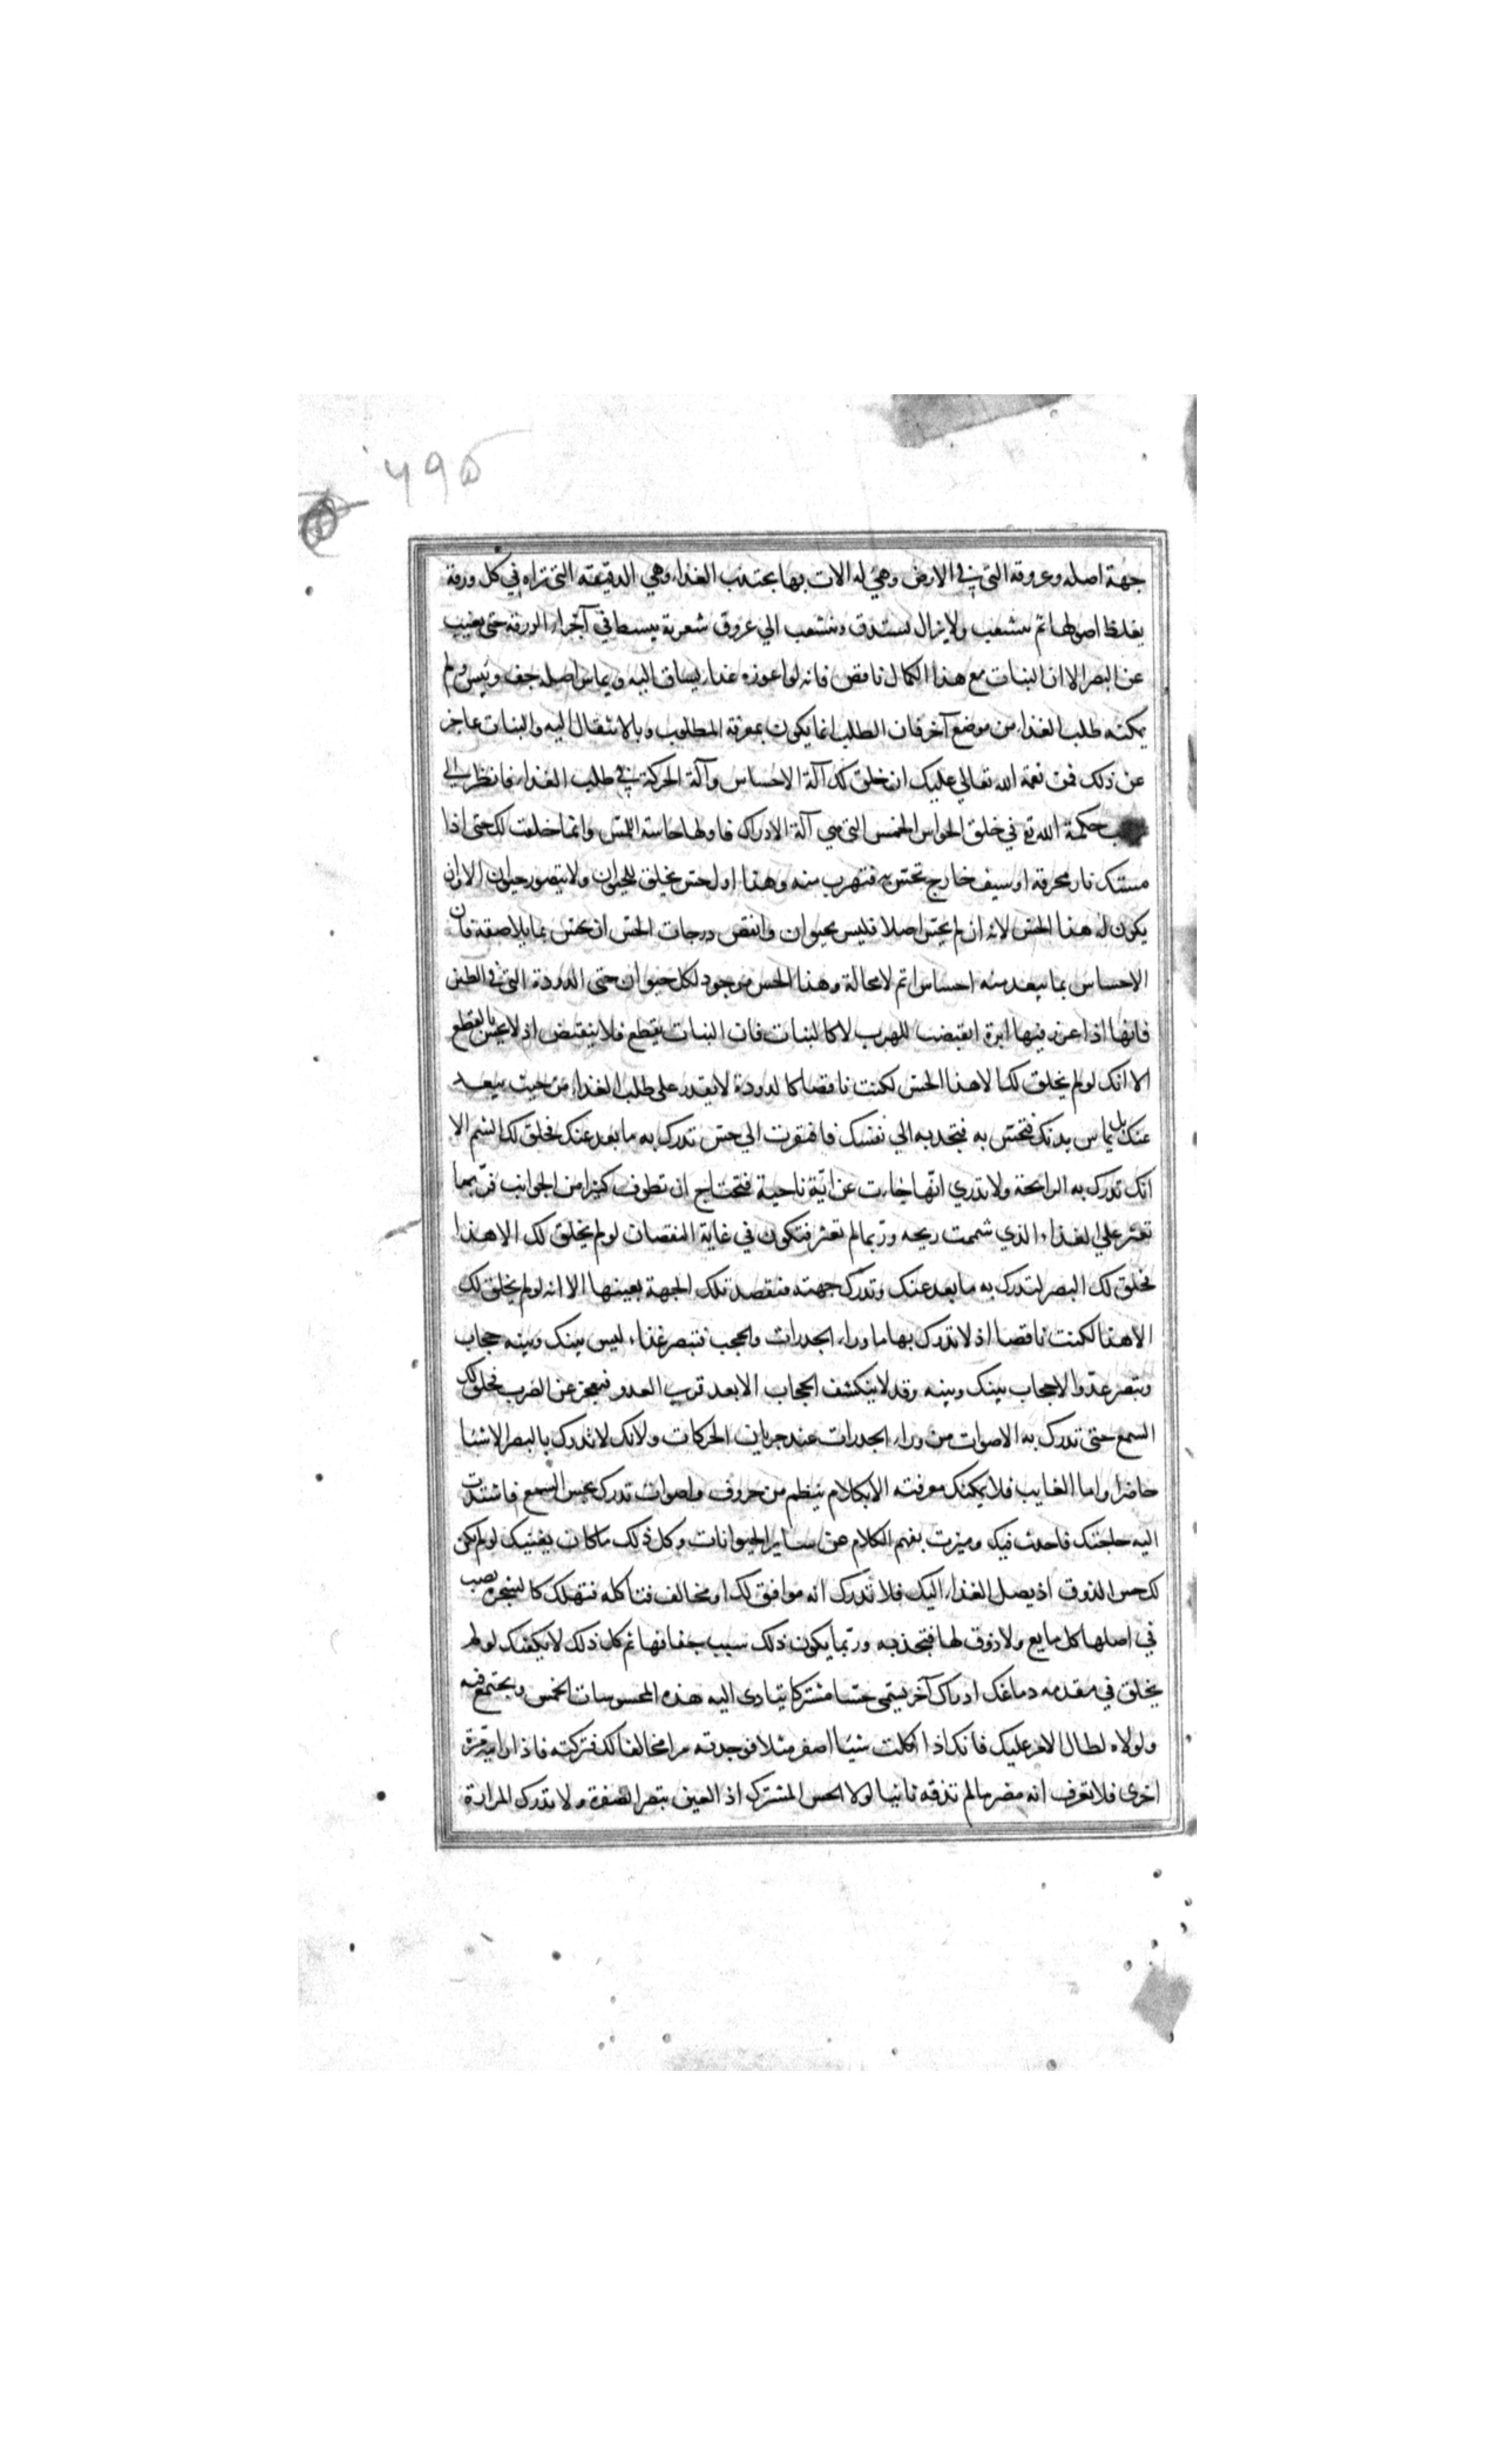 ۵۹۵
جهة اصله وعروقه التي في الارض وهي له الات بها يجتذب الغذاء وهي الدقيقة التي تراه في كل ورقة
يغلظ اصولها ثم ينشعب ولا يزال يستدق وينشعب الي عروق شعرية ينبسط في آجزاء الورقة حتى يغيب
عن البصر الا ان النبات مع هذا الكمال ناقص فانه لو اعوزه غذاء يساق اليه ويماس اصله جف ويبس ولم
يمكنه طلب الغذاء من موضع آخر فان الطلب انما يكون بمعرفة المطلوب وبالانتقال اليه والنبات عاجز
عن ذلك فمن نعمة الله تعالي عليك ان خلق لك آلة الاحساس وآلة الحركة في طلب الغذاء فانظر الي
حكمة الله تع في خلق الحواس الخمس التي هي آلة الادراك فاولها حاسة اللمس وانما خلقت لك حتى اذا
مستك نار محرقة او سيف خارج تحس به فتهرب منه وهذا اول حس يخلق للحيوان ولا يتصور حيوان الا وان
يكون له هذا الحس لانه ان لم يحس اصلا فليس بحيوان وانقص درجات الحس ان يحس بما يلاصقه فان
الاحساس بما يبعد منه احساس اتم لا محالة وهذا الحس موجود لكل حيوان حتى الدودة التي في الطين
فانها اذا غرز فيها ابرة انقبضت للهرب لا كالنبات فان النبات يقطع فلا ينقبض اذ لا يحس بالقطع
الا انك لو لم يخلق لك الا هذا الحس لكنت ناقصا كالدودة لا يقدر على طلب الغذاء من حيث يبعد
عنك بل يماس بدنك فتحس به فتجذبه الي نفسك فافتقرت الي حس تدرك به ما بعد عنك فخلق لك الشم الا
انك تدرك به الرايحة ولا تدري انها جاءت عن اية ناحية فتحتاج ان تطوف كثيرا من الجوانب فربما
تعثر علي الغذاء الذي شممت ريحه وربما لم تعثر فتكون في غاية النقصان لو لم يخلق لك الا هذا
فخلق لك البصر لتدرك به ما بعد عنك وتدرك جهته فتقصد تلك الجهة بعينها الا انه لو لم يخلق لك
الا هذا لكنت ناقصا اذ لا تدرك بها ما وراء الجدرات والحجب فتبصر غذاء ليس بينك وبينه حجاب
وتبصر عدوا لا حجاب بينك وبينه وقد لا ينكشف الحجاب الا بعد قرب العدو فيعجز عن الهرب فخلق لك
السمع حتى تدرك به الاصوات من وراء الجدرات عند جريان الحركات ولانك لا تدرك بالبصر الا شيئا
حاضرا واما الغايب فلا يمكنك معرفته الا بكلام ينظم من حروف واصوات تدرك بحس السمع فاشتدت
اليه حاجتك فاحدث فيك وميزت بفهم الكلام عن ساير الحيوانات وكل ذلك ما كان يغنيك لو لم يكن
لك حس الذوق اذ يصل الغذاء اليك فلا تدرك انه موافق لك او مخالف فتاكله فتهلك كالشجرة يصب
في اصلها كل مايع ولا ذوق لها فتجذبه وربما يكون ذلك سبب جفافها ثم كل ذلك لا يكفيك لو لم
يخلق في مقدمه دماغك ادراك آخر يسمى حسا مشتركا يتادى اليه هذه المحسوسات الخمس ويجتمع فيه
ولولاه لطال الامر عليك فانك اذا اكلت شيئا اصفر مثلا فوجدته مرا مخالفا لك فتركته فاذا رايته مرة
اخرى فلا تعرف انه مضر ما لم تذقه ثانيا لولا الحس المشترك اذ العين تبصر الصفرة ولا تدرك المرارة